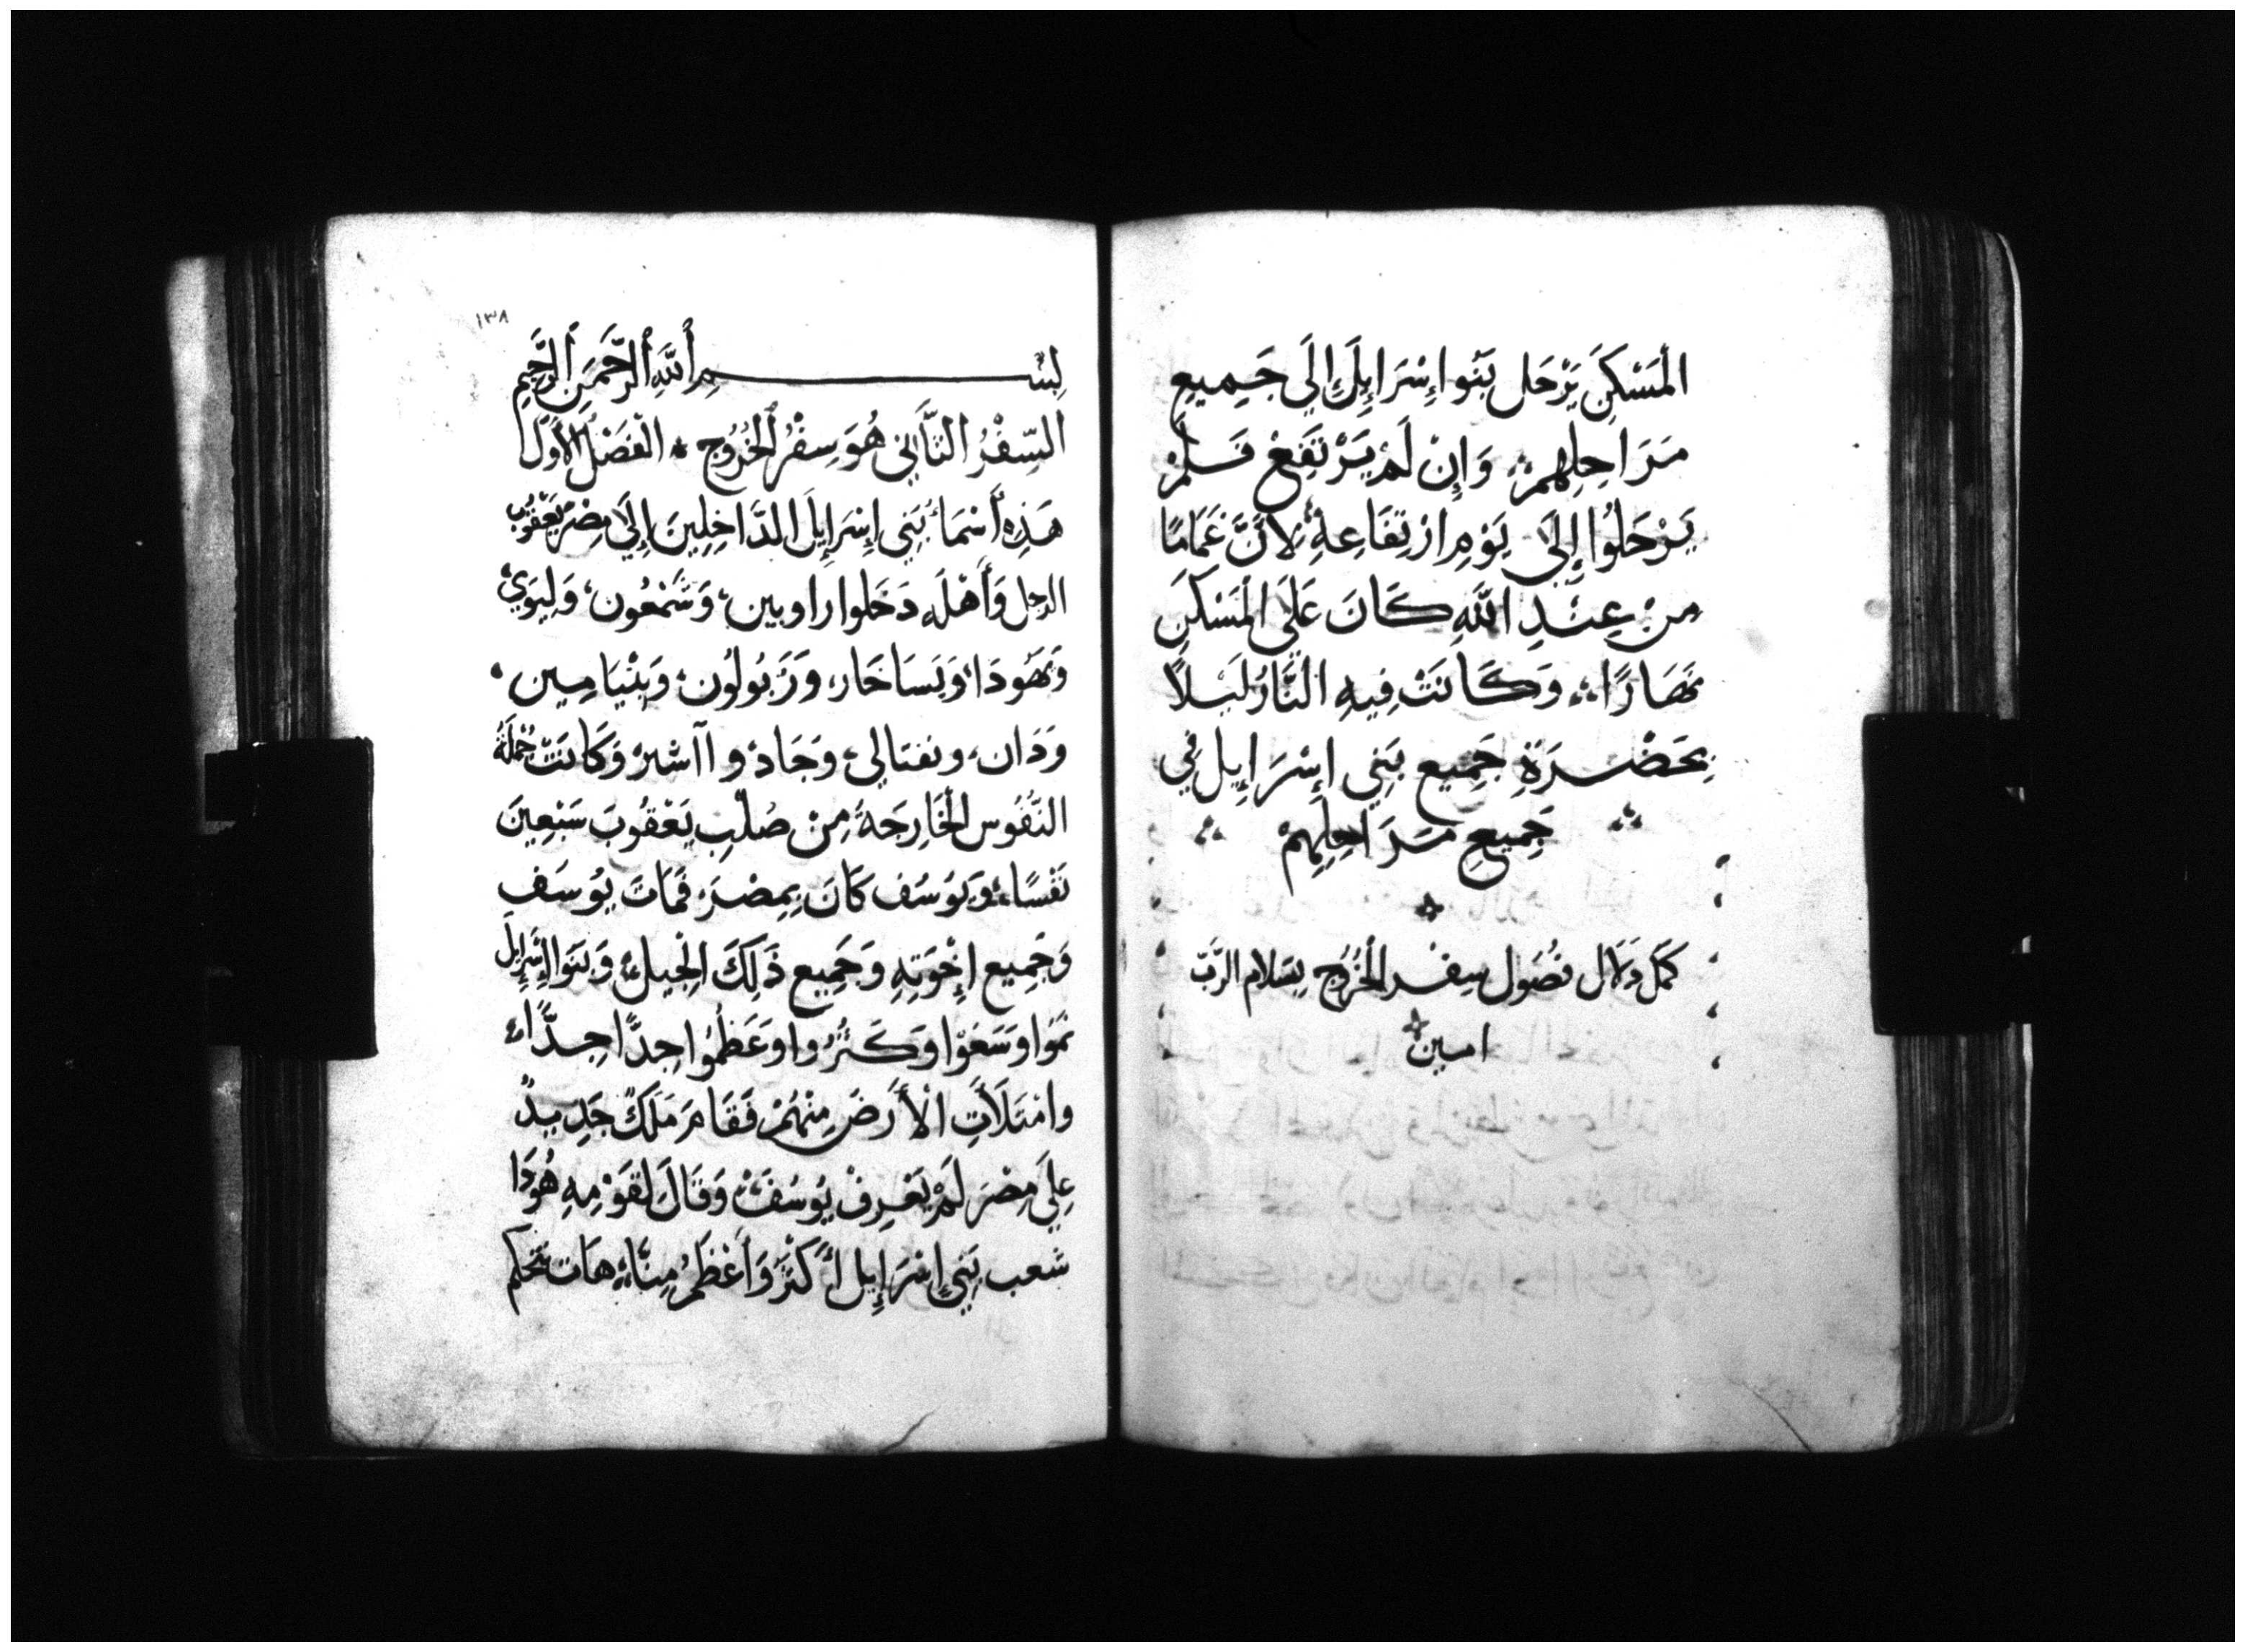 المَسْكِنَ يَرْحَل بَنُوا إِسْرَايِلَ إِلَي جَمِيعِ
مَرَاحِلِهِمْ وَإِنْ لَمْ يَرْتَفِعْ فَلَمْ
يَرْحَلُوا إِلَى يَوْمِ ارْتِفَاعِهِ لِأَنَّ غَمَامًا
مِنْ عِنْدِ اللَّهِ كَانَ عَلَى المَسْكِنِ
نَهَارًا وَكَانَتْ فِيهِ النَّارُ لَيْلًا
بِحَضْرَةِ جَمِيعِ بَنِي إِسْرَايِل فِي
جَمِيعِ مَرَاحِلِهِمْ
كمل فصُول سِفر الخُرُوج بسَلام الرَّبّ
امين
١٣٨
بِسْمِ اللَّهِ الرَّحْمَنِ الرَّحِيمِ
السِّفْرُ الثَّانِي هُوَ سِفْرُ الخُرُوجِ الْفَصْلُ الأَوَل
هَذِهِ أَسْمَاءُ بَنِي إِسْرَايِلَ الدَّاخِلِينَ إِلَى مِصْرَ يَعْقُوبُ
الرجل وَأَهْلَه دَخَلوا راوبين، وَشَمْعُون، وَلِيَوِي،
وَيَهُودَا، وَيَسَاخَار، وَزَبُولُون، وَبِنْيَامِين،
وَدَان، ونفتالي، وَجَاد، وآاشر وَكَانَتْ جُمْلَةُ
النُّفُوسِ الْخَارِجَةُ مِنْ صُلْبِ يَعْقُوبَ سَبْعِينَ
نَفْسًا، وَيُوسُف كَانَ بِمِصْرَ، فَمَاتَ يُوسَف
وَجَمِيع إِخْوَتِهِ وَجَمِيع ذَلِكَ الْجِيل، وَبَنَوا إِسْرَايِلَ
نَمَوا وَسَعَوْا وَكَثُرُوا وَعَظُمُوا جِدًّا جِدًّا،
وامْتَلَأَتِ الْأَرضَ مِنْهُمْ فَقَامَ مَلَكٌ جَدِيدٌ
عَلَي مِصْرَ لَمْ يَعْرِفْ يُوسُفَ وَقَالَ لِقَوْمِهِ هُوَذَا
شعب بَنِي إِسْرَايِل أَكْثَرُ وَأَعْظَمُ مِنَّا، هَات نَتحَكَّم